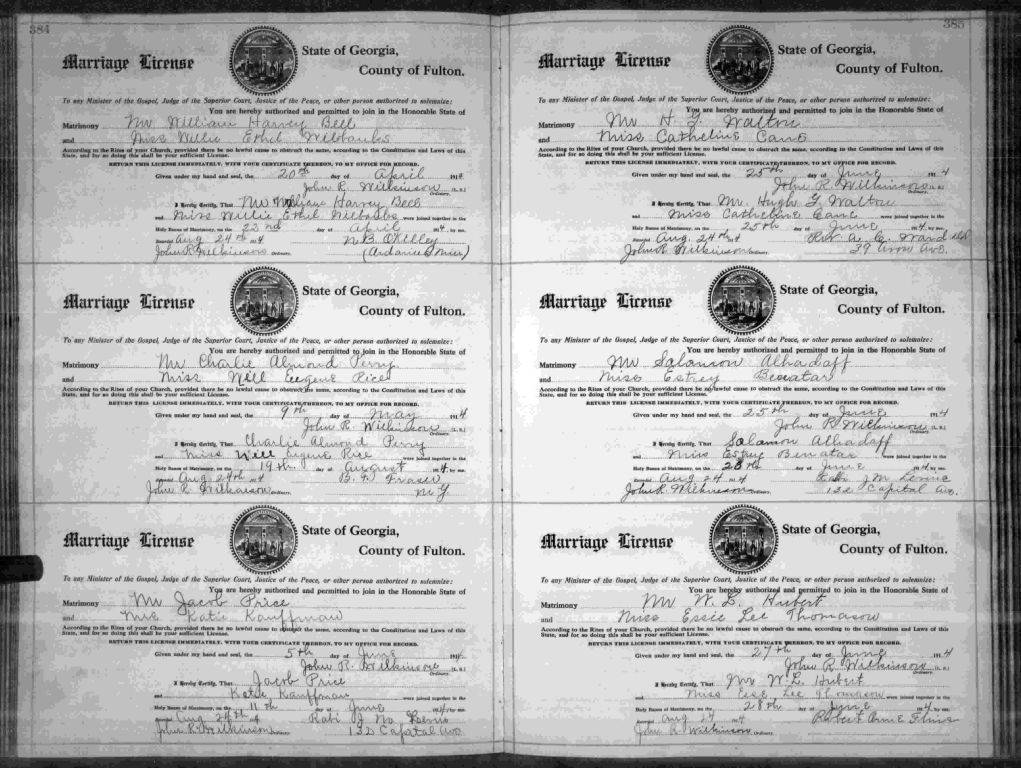 384
Marriage License
State of Georgia,
County of Fulton.
To any Minister of the Gospel, Judge of the Superior Court, Justice of the Peace, or other person authorized to solemnize:
You are hereby authorized and permitted to join in the Honorable State of
Matrimony Mr William Harvey Bell
and Miss Willie Ethel Wilbanks
According to the Rites of your Church, provided there be no lawful cause to obstruct the same, according to the Constitution and Laws of this
State, and for so doing this shall be your sufficient License.
RETURN THIS LICENSE IMMEDIATELY, WITH YOUR CERTIFICATE THEREON, TO MY OFFICE FOR RECORD.
Given under my hand and seal, the 20th day of April 1914
John R. Wilkinson (L. S.)
Ordinary.
I Hereby Certify, That Mr William Harvey Bell
and Miss Willie Ethel Wilbanks were joined together in the
Holy Banns of Matrimony, on the 22nd day of April 1914, by me.
Recorded Aug 24th 1914 N. B. O'Kelley
John R Wilkinson Ordinary.
Marriage License
State of Georgia,
County of Fulton.
To any Minister of the Gospel, Judge of the Superior Court, Justice of the Peace, or other person authorized to solemnize:
You are hereby authorized and permitted to join in the Honorable State of
Matrimony Mr Charlie Almond Perry
and Miss Nell Eugene Rice
According to the Rites of your Church, provided there be no lawful cause to obstruct the same, according to the Constitution and Laws of this
State, and for so doing this shall be your sufficient License.
RETURN THIS LICENSE IMMEDIATELY, WITH YOUR CERTIFICATE THEREON, TO MY OFFICE FOR RECORD.
Given under my hand and seal, the 9th day of May 1914
John R. Wilkinson (L. S.)
Ordinary.
I Hereby Certify, That Charlie Almond Perry
and Miss Nell Eugene Rice were joined together in the
Holy Banns of Matrimony, on the 19th day of August 1914, by me.
Recorded Aug 24th 1914 B. F. Fraser
John R. Wilkinson Ordinary. M. G.
Marriage License
State of Georgia,
County of Fulton.
To any Minister of the Gospel, Judge of the Superior Court, Justice of the Peace, or other person authorized to solemnize:
You are hereby authorized and permitted to join in the Honorable State of
Matrimony Mr Jacob Price
and Miss Katie Kauffman
According to the Rites of your Church, provided there be no lawful cause to obstruct the same, according to the Constitution and Laws of this
State, and for so doing this shall be your sufficient License.
RETURN THIS LICENSE IMMEDIATELY, WITH YOUR CERTIFICATE THEREON, TO MY OFFICE FOR RECORD.
Given under my hand and seal, the 5th day of June 1914
John R. Wilkinson (L. S.)
Ordinary.
I Hereby Certify, That Jacob Price
and Katie Kauffman were joined together in the
Holy Banns of Matrimony, on the 11th day of June 1914, by me.
Recorded Aug 24th 1914 Rabi J. M.
John R. Wilkinson Ordinary. 132 Capital Ave
385
Marriage License
State of Georgia,
County of Fulton.
To any Minister of the Gospel, Judge of the Superior Court, Justice of the Peace, or other person authorized to solemnize:
You are hereby authorized and permitted to join in the Honorable State of
Matrimony Mr H. G. Walton
and Miss Catheline Cane
According to the Rites of your Church, provided there be no lawful cause to obstruct the same, according to the Constitution and Laws of this
State, and for so doing this shall be your sufficient License.
RETURN THIS LICENSE IMMEDIATELY, WITH YOUR CERTIFICATE THEREON, TO MY OFFICE FOR RECORD.
Given under my hand and seal, the 25th day of June 1914
John R. Wilkinson (L. S.)
Ordinary.
I Hereby Certify, That Mr. Hugh G Walton
and Miss Catheline Cane were joined together in the
Holy Banns of Matrimony, on the 25th day of June 1914, by me.
Recorded Aug. 24th 1914 Rev A. C. Ward
John R. Wilkinson Ordinary. 39 Ave.
Marriage License
State of Georgia,
County of Fulton.
To any Minister of the Gospel, Judge of the Superior Court, Justice of the Peace, or other person authorized to solemnize:
You are hereby authorized and permitted to join in the Honorable State of
Matrimony Mr Salamon Alhadaff
and Miss Estrey Benatar
According to the Rites of your Church, provided there be no lawful cause to obstruct the same, according to the Constitution and Laws of this
State, and for so doing this shall be your sufficient License.
RETURN THIS LICENSE IMMEDIATELY, WITH YOUR CERTIFICATE THEREON, TO MY OFFICE FOR RECORD.
Given under my hand and seal, the 25th day of June 1914
John R. Wilkinson
Ordinary.
I Hereby Certify, That Salamon Alhadaff
and Miss Estrey Benatar were joined together in the
Holy Banns of Matrimony, on the 28th day of June 1914, by me.
Recorded Aug 24 1914 Rabi J. M. Levine
John R. Wilkinson Ordinary. 132 Capital Ave.
Marriage License
State of Georgia,
County of Fulton.
To any Minister of the Gospel, Judge of the Superior Court, Justice of the Peace, or other person authorized to solemnize:
You are hereby authorized and permitted to join in the Honorable State of
Matrimony Mr W. L. Hubert
and Miss Essie Lee Thomason
According to the Rites of your Church, provided there be no lawful cause to obstruct the same, according to the Constitution and Laws of this
State, and for so doing this shall be your sufficient License.
RETURN THIS LICENSE IMMEDIATELY, WITH YOUR CERTIFICATE THEREON, TO MY OFFICE FOR RECORD.
Given under my hand and seal, the 27th day of June 1914
John R. Wilkinson (L. S.)
Ordinary.
I Hereby Certify, That Mr W. L. Hubert
and Miss Essie Lee Thomason were joined together in the
Holy Banns of Matrimony, on the 28th day of June 1914, by me.
Recorded Aug 24 1914 Robert
John R. Wilkinson Ordinary.